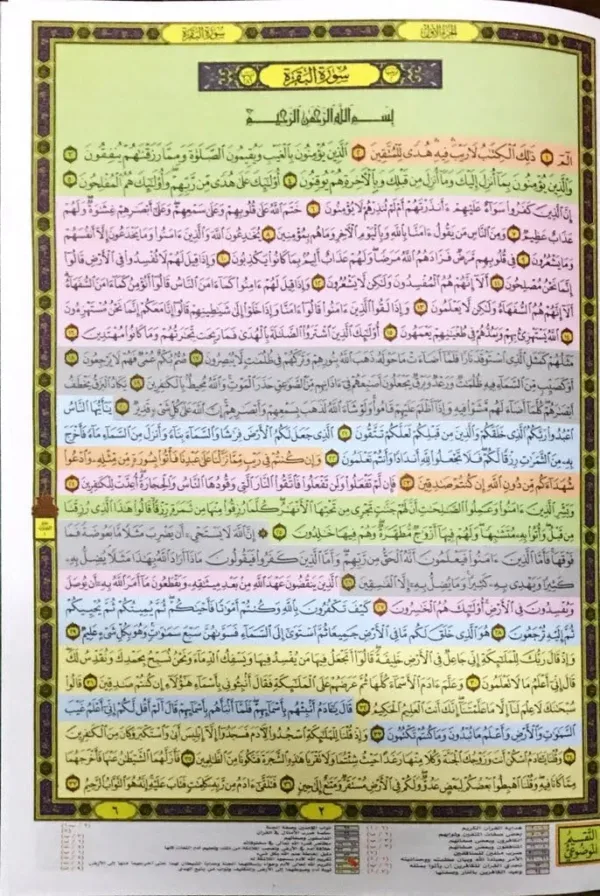 الجزء الأول سورة البقرة
سورة البقرة
بسم الله الرحمن الرحيم
الٓمٓ ١ ذَٰلِكَ ٱلْكِتَٰبُ لَا رَيْبَ فِيهِ هُدًى لِّلْمُتَّقِينَ ٢ ٱلَّذِينَ يُؤْمِنُونَ بِٱلْغَيْبِ وَيُقِيمُونَ ٱلصَّلَوٰةَ وَمِمَّا رَزَقْنَٰهُمْ يُنفِقُونَ ٣
وَٱلَّذِينَ يُؤْمِنُونَ بِمَآ أُنزِلَ إِلَيْكَ وَمَآ أُنزِلَ مِن قَبْلِكَ وَبِٱلْءَاخِرَةِ هُمْ يُوقِنُونَ ٤ أُو۟لَٰٓئِكَ عَلَىٰ هُدًى مِّن رَّبِّهِمْ وَأُو۟لَٰٓئِكَ هُمُ ٱلْمُفْلِحُونَ ٥
إِنَّ ٱلَّذِينَ كَفَرُوا۟ سَوَآءٌ عَلَيْهِمْ ءَأَنذَرْتَهُمْ أَمْ لَمْ تُنذِرْهُمْ لَا يُؤْمِنُونَ ٦ خَتَمَ ٱللَّهُ عَلَىٰ قُلُوبِهِمْ وَعَلَىٰ سَمْعِهِمْ وَعَلَىٰٓ أَبْصَٰرِهِمْ غِشَٰوَةٌ وَلَهُمْ
عَذَابٌ عَظِيمٌ ٧ وَمِنَ ٱلنَّاسِ مَن يَقُولُ ءَامَنَّا بِٱللَّهِ وَبِٱلْيَوْمِ ٱلْءَاخِرِ وَمَا هُم بِمُؤْمِنِينَ ٨ يُخَٰدِعُونَ ٱللَّهَ وَٱلَّذِينَ ءَامَنُوا۟ وَمَا يَخْدَعُونَ إِلَّآ أَنفُسَهُمْ
وَمَا يَشْعُرُونَ ٩ فِى قُلُوبِهِم مَّرَضٌ فَزَادَهُمُ ٱللَّهُ مَرَضًا وَلَهُمْ عَذَابٌ أَلِيمٌۢ بِمَا كَانُوا۟ يَكْذِبُونَ ١٠ وَإِذَا قِيلَ لَهُمْ لَا تُفْسِدُوا۟ فِى ٱلْأَرْضِ قَالُوٓا۟
إِنَّمَا نَحْنُ مُصْلِحُونَ ١١ أَلَآ إِنَّهُمْ هُمُ ٱلْمُفْسِدُونَ وَلَٰكِن لَّا يَشْعُرُونَ ١٢ وَإِذَا قِيلَ لَهُمْ ءَامِنُوا۟ كَمَآ ءَامَنَ ٱلنَّاسُ قَالُوٓا۟ أَنُؤْمِنُ كَمَآ ءَامَنَ ٱلسُّفَهَآءُ
أَلَآ إِنَّهُمْ هُمُ ٱلسُّفَهَآءُ وَلَٰكِن لَّا يَعْلَمُونَ ١٣ وَإِذَا لَقُوا۟ ٱلَّذِينَ ءَامَنُوا۟ قَالُوٓا۟ ءَامَنَّا وَإِذَا خَلَوْا۟ إِلَىٰ شَيَٰطِينِهِمْ قَالُوٓا۟ إِنَّا مَعَكُمْ إِنَّمَا نَحْنُ مُسْتَهْزِءُونَ
١٤ ٱللَّهُ يَسْتَهْزِئُ بِهِمْ وَيَمُدُّهُمْ فِى طُغْيَٰنِهِمْ يَعْمَهُونَ ١٥ أُو۟لَٰٓئِكَ ٱلَّذِينَ ٱشْتَرَوُا۟ ٱلضَّلَٰلَةَ بِٱلْهُدَىٰ فَمَا رَبِحَت تِّجَٰرَتُهُمْ وَمَا كَانُوا۟ مُهْتَدِينَ ١٦
مَثَلُهُمْ كَمَثَلِ ٱلَّذِى ٱسْتَوْقَدَ نَارًا فَلَمَّآ أَضَآءَتْ مَا حَوْلَهُۥ ذَهَبَ ٱللَّهُ بِنُورِهِمْ وَتَرَكَهُمْ فِى ظُلُمَٰتٍ لَّا يُبْصِرُونَ ١٧ صُمٌّۢ بُكْمٌ عُمْىٌ فَهُمْ لَا يَرْجِعُونَ ١٨
أَوْ كَصَيِّبٍ مِّنَ ٱلسَّمَآءِ فِيهِ ظُلُمَٰتٌ وَرَعْدٌ وَبَرْقٌ يَجْعَلُونَ أَصَٰبِعَهُمْ فِىٓ ءَاذَانِهِم مِّنَ ٱلصَّوَٰعِقِ حَذَرَ ٱلْمَوْتِ وَٱللَّهُ مُحِيطٌۢ بِٱلْكَٰفِرِينَ ١٩ يَكَادُ ٱلْبَرْقُ يَخْطَفُ
أَبْصَٰرَهُمْ كُلَّمَآ أَضَآءَ لَهُم مَّشَوْا۟ فِيهِ وَإِذَآ أَظْلَمَ عَلَيْهِمْ قَامُوا۟ وَلَوْ شَآءَ ٱللَّهُ لَذَهَبَ بِسَمْعِهِمْ وَأَبْصَٰرِهِمْ إِنَّ ٱللَّهَ عَلَىٰ كُلِّ شَىْءٍ قَدِيرٌ ٢٠ يَٰٓأَيُّهَا ٱلنَّاسُ
ٱعْبُدُوا۟ رَبَّكُمُ ٱلَّذِى خَلَقَكُمْ وَٱلَّذِينَ مِن قَبْلِكُمْ لَعَلَّكُمْ تَتَّقُونَ ٢١ ٱلَّذِى جَعَلَ لَكُمُ ٱلْأَرْضَ فِرَٰشًا وَٱلسَّمَآءَ بِنَآءً وَأَنزَلَ مِنَ ٱلسَّمَآءِ مَآءً فَأَخْرَجَ
بِهِۦ مِنَ ٱلثَّمَرَٰتِ رِزْقًا لَّكُمْ فَلَا تَجْعَلُوا۟ لِلَّهِ أَندَادًا وَأَنتُمْ تَعْلَمُونَ ٢٢ وَإِن كُنتُمْ فِى رَيْبٍ مِّمَّا نَزَّلْنَا عَلَىٰ عَبْدِنَا فَأْتُوا۟ بِسُورَةٍ مِّن مِّثْلِهِۦ وَٱدْعُوا۟
شُهَدَآءَكُم مِّن دُونِ ٱللَّهِ إِن كُنتُمْ صَٰدِقِينَ ٢٣ فَإِن لَّمْ تَفْعَلُوا۟ وَلَن تَفْعَلُوا۟ فَٱتَّقُوا۟ ٱلنَّارَ ٱلَّتِى وَقُودُهَا ٱلنَّاسُ وَٱلْحِجَارَةُ أُعِدَّتْ لِلْكَٰفِرِينَ ٢٤
وَبَشِّرِ ٱلَّذِينَ ءَامَنُوا۟ وَعَمِلُوا۟ ٱلصَّٰلِحَٰتِ أَنَّ لَهُمْ جَنَّٰتٍ تَجْرِى مِن تَحْتِهَا ٱلْأَنْهَٰرُ كُلَّمَا رُزِقُوا۟ مِنْهَا مِن ثَمَرَةٍ رِّزْقًا قَالُوا۟ هَٰذَا ٱلَّذِى رُزِقْنَا
مِن قَبْلُ وَأُتُوا۟ بِهِۦ مُتَشَٰبِهًا وَلَهُمْ فِيهَآ أَزْوَٰجٌ مُّطَهَّرَةٌ وَهُمْ فِيهَا خَٰلِدُونَ ٢٥ ۞ إِنَّ ٱللَّهَ لَا يَسْتَحْىِۦٓ أَن يَضْرِبَ مَثَلًا مَّا بَعُوضَةً فَمَا
فَوْقَهَا فَأَمَّا ٱلَّذِينَ ءَامَنُوا۟ فَيَعْلَمُونَ أَنَّهُ ٱلْحَقُّ مِن رَّبِّهِمْ وَأَمَّا ٱلَّذِينَ كَفَرُوا۟ فَيَقُولُونَ مَاذَآ أَرَادَ ٱللَّهُ بِهَٰذَا مَثَلًا يُضِلُّ بِهِۦ
كَثِيرًا وَيَهْدِى بِهِۦ كَثِيرًا وَمَا يُضِلُّ بِهِۦٓ إِلَّا ٱلْفَٰسِقِينَ ٢٦ ٱلَّذِينَ يَنقُضُونَ عَهْدَ ٱللَّهِ مِنۢ بَعْدِ مِيثَٰقِهِۦ وَيَقْطَعُونَ مَآ أَمَرَ ٱللَّهُ بِهِۦٓ أَن يُوصَلَ
وَيُفْسِدُونَ فِى ٱلْأَرْضِ أُو۟لَٰٓئِكَ هُمُ ٱلْخَٰسِرُونَ ٢٧ كَيْفَ تَكْفُرُونَ بِٱللَّهِ وَكُنتُمْ أَمْوَٰتًا فَأَحْيَٰكُمْ ثُمَّ يُمِيتُكُمْ ثُمَّ يُحْيِيكُمْ
ثُمَّ إِلَيْهِ تُرْجَعُونَ ٢٨ هُوَ ٱلَّذِى خَلَقَ لَكُم مَّا فِى ٱلْأَرْضِ جَمِيعًا ثُمَّ ٱسْتَوَىٰٓ إِلَى ٱلسَّمَآءِ فَسَوَّىٰهُنَّ سَبْعَ سَمَٰوَٰتٍ وَهُوَ بِكُلِّ شَىْءٍ عَلِيمٌ ٢٩
وَإِذْ قَالَ رَبُّكَ لِلْمَلَٰٓئِكَةِ إِنِّى جَاعِلٌ فِى ٱلْأَرْضِ خَلِيفَةً قَالُوٓا۟ أَتَجْعَلُ فِيهَا مَن يُفْسِدُ فِيهَا وَيَسْفِكُ ٱلدِّمَآءَ وَنَحْنُ نُسَبِّحُ بِحَمْدِكَ وَنُقَدِّسُ لَكَ
قَالَ إِنِّىٓ أَعْلَمُ مَا لَا تَعْلَمُونَ ٣٠ وَعَلَّمَ ءَادَمَ ٱلْأَسْمَآءَ كُلَّهَا ثُمَّ عَرَضَهُمْ عَلَى ٱلْمَلَٰٓئِكَةِ فَقَالَ أَنۢبِـُٔونِى بِأَسْمَآءِ هَٰٓؤُلَآءِ إِن كُنتُمْ صَٰدِقِينَ ٣١ قَالُوا۟
سُبْحَٰنَكَ لَا عِلْمَ لَنَآ إِلَّا مَا عَلَّمْتَنَآ إِنَّكَ أَنتَ ٱلْعَلِيمُ ٱلْحَكِيمُ ٣٢ قَالَ يَٰٓـَٔادَمُ أَنۢبِئْهُم بِأَسْمَآئِهِمْ فَلَمَّآ أَنۢبَأَهُم بِأَسْمَآئِهِمْ قَالَ أَلَمْ أَقُل لَّكُمْ إِنِّىٓ أَعْلَمُ غَيْبَ
ٱلسَّمَٰوَٰتِ وَٱلْأَرْضِ وَأَعْلَمُ مَا تُبْدُونَ وَمَا كُنتُمْ تَكْتُمُونَ ٣٣ وَإِذْ قُلْنَا لِلْمَلَٰٓئِكَةِ ٱسْجُدُوا۟ لِءَادَمَ فَسَجَدُوٓا۟ إِلَّآ إِبْلِيسَ أَبَىٰ وَٱسْتَكْبَرَ وَكَانَ مِنَ ٱلْكَٰفِرِينَ
٣٤ وَقُلْنَا يَٰٓـَٔادَمُ ٱسْكُنْ أَنتَ وَزَوْجُكَ ٱلْجَنَّةَ وَكُلَا مِنْهَا رَغَدًا حَيْثُ شِئْتُمَا وَلَا تَقْرَبَا هَٰذِهِ ٱلشَّجَرَةَ فَتَكُونَا مِنَ ٱلظَّٰلِمِينَ ٣٥ فَأَزَلَّهُمَا ٱلشَّيْطَٰنُ عَنْهَا فَأَخْرَجَهُمَا
مِمَّا كَانَا فِيهِ وَقُلْنَا ٱهْبِطُوا۟ بَعْضُكُمْ لِبَعْضٍ عَدُوٌّ وَلَكُمْ فِى ٱلْأَرْضِ مُسْتَقَرٌّ وَمَتَٰعٌ إِلَىٰ حِينٍ ٣٦ فَتَلَقَّىٰٓ ءَادَمُ مِن رَّبِّهِۦ كَلِمَٰتٍ فَتَابَ عَلَيْهِ إِنَّهُۥ هُوَ ٱلتَّوَّابُ ٱلرَّحِيمُ ٣٧
٢ ٦
التقسيم الموضوعي
هداية القرآن الكريم